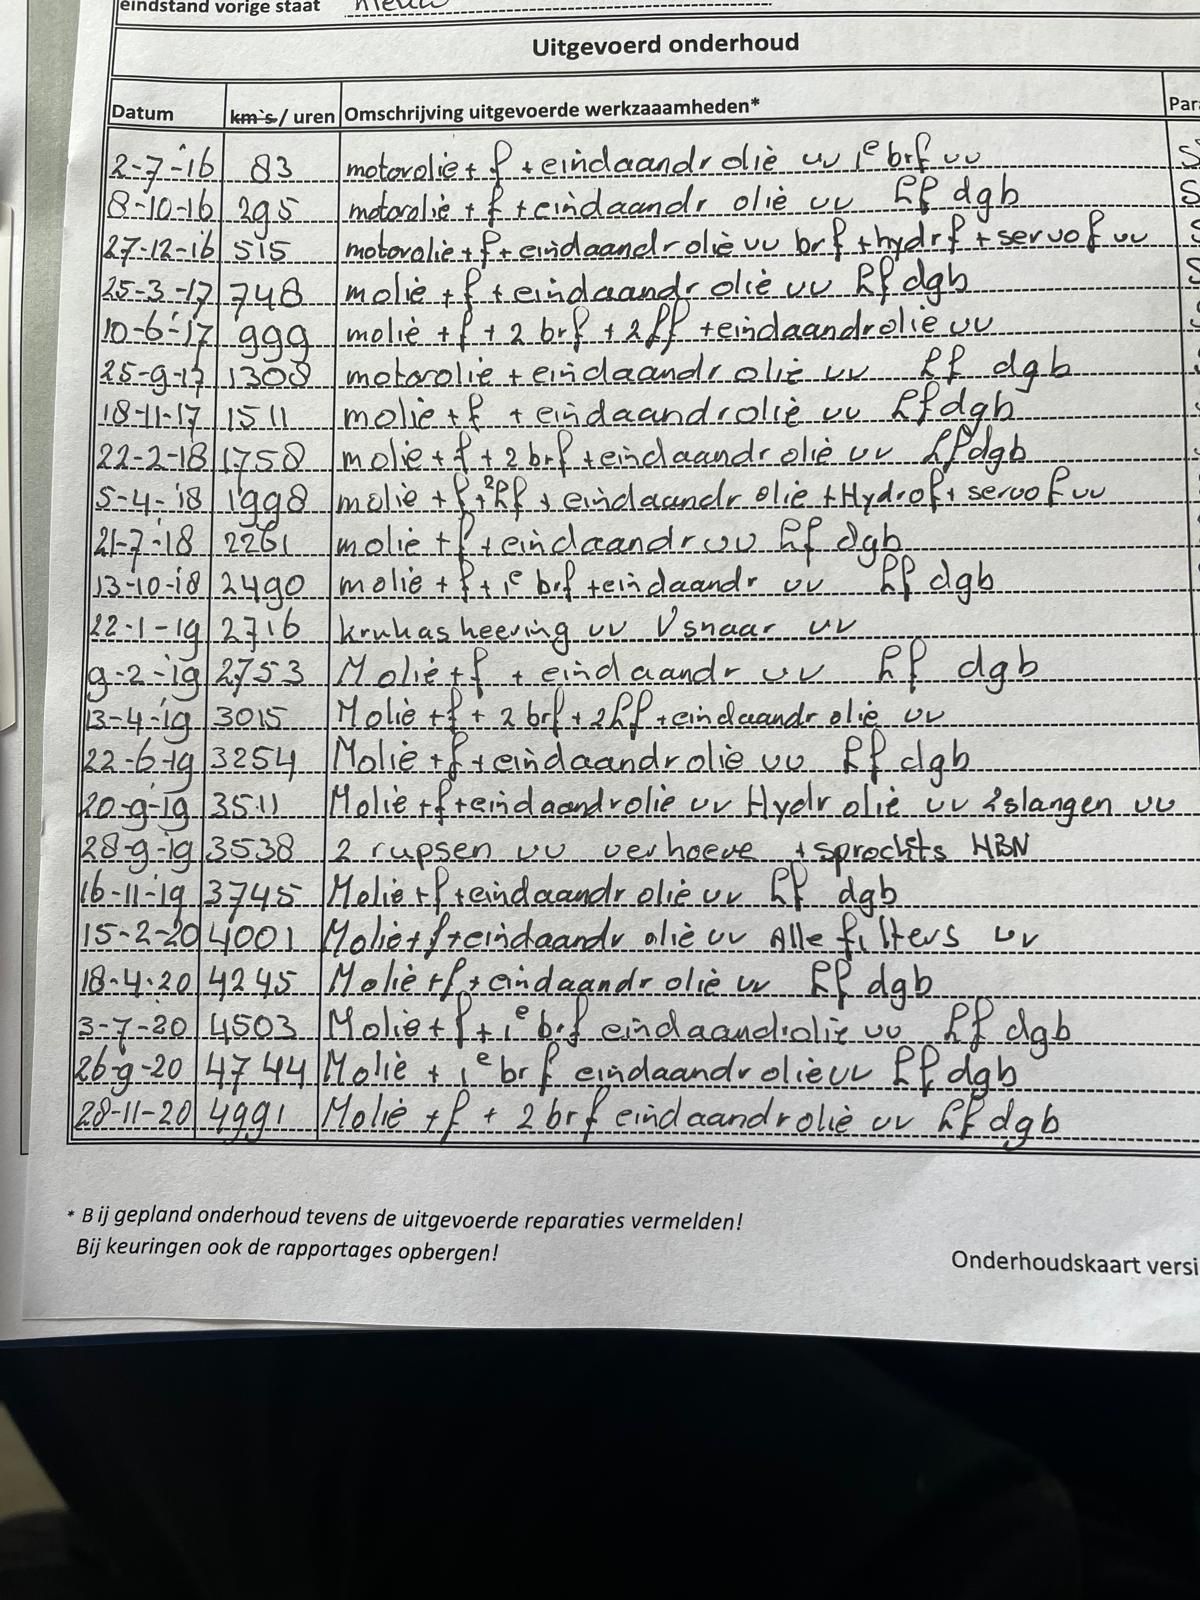 eindstand vorige staat nieuw
Uitgevoerd onderhoud
Datum km's / uren Omschrijving uitgevoerde werkzaaamheden* Par
2-7-16 83 motorolie + f + eindaandr olie vv 1e brf vv S
8-10-16 295 motorolie + f + eindaandr olie vv Lf dgb S
27-12-16 515 motorolie + f + eindaandr olie vv brf + hydrf + servof vv S
25-3-17 748 molie + f + eindaandr olie vv Lf dgb S
10-6-17 999 molie + f + 2 brf + 2 Lf + eindaandrolie vv
25-9-17 1308 motorolie + eindaandr olie vv Lf dgb
18-11-17 1511 molie + f + eindaandrolie vv Lf dgb
22-2-18 1758 molie + f + 2 brf + eindaandr olie vv Lf dgb
5-4-18 1998 molie + f + 2Lf + eindaandr olie + Hydrof + servof vv
21-7-18 2261 molie + f + eindaandr vv Lf dgb
13-10-18 2490 molie + f + 1e brf + eindaandr vv Lf dgb
22-1-19 2716 krukas keering vv V snaar vv
9-2-19 2753 Molie + f + eindaandr vv Lf dgb
13-4-19 3015 Molie + f + 2 brf + 2Lf + eindaandr olie vv
22-6-19 3254 Molie + f + eindaandrolie vv Lf dgb
20-9-19 3511 Molie + f + eindaandrolie vv Hydr olie vv 2slangen vv
28-9-19 3538 2 rupsen vv verhoeve + sprockts HBN
16-11-19 3745 Molie + f + eindaandr olie vv Lf dgb
15-2-20 4001 Molie + f + eindaandr olie vv Alle filters vv
18-4-20 4245 Molie + f + eindaandr olie vv Lf dgb
3-7-20 4503 Molie + f + 1e brf eindaandrolie vv Lf dgb
26-9-20 4744 Molie + 1e brf eindaandrolie vv Lf dgb
28-11-20 4991 Molie + f + 2 brf eindaandrolie vv Lf dgb
* Bij gepland onderhoud tevens de uitgevoerde reparaties vermelden!
Bij keuringen ook de rapportages opbergen!
Onderhoudskaart versi